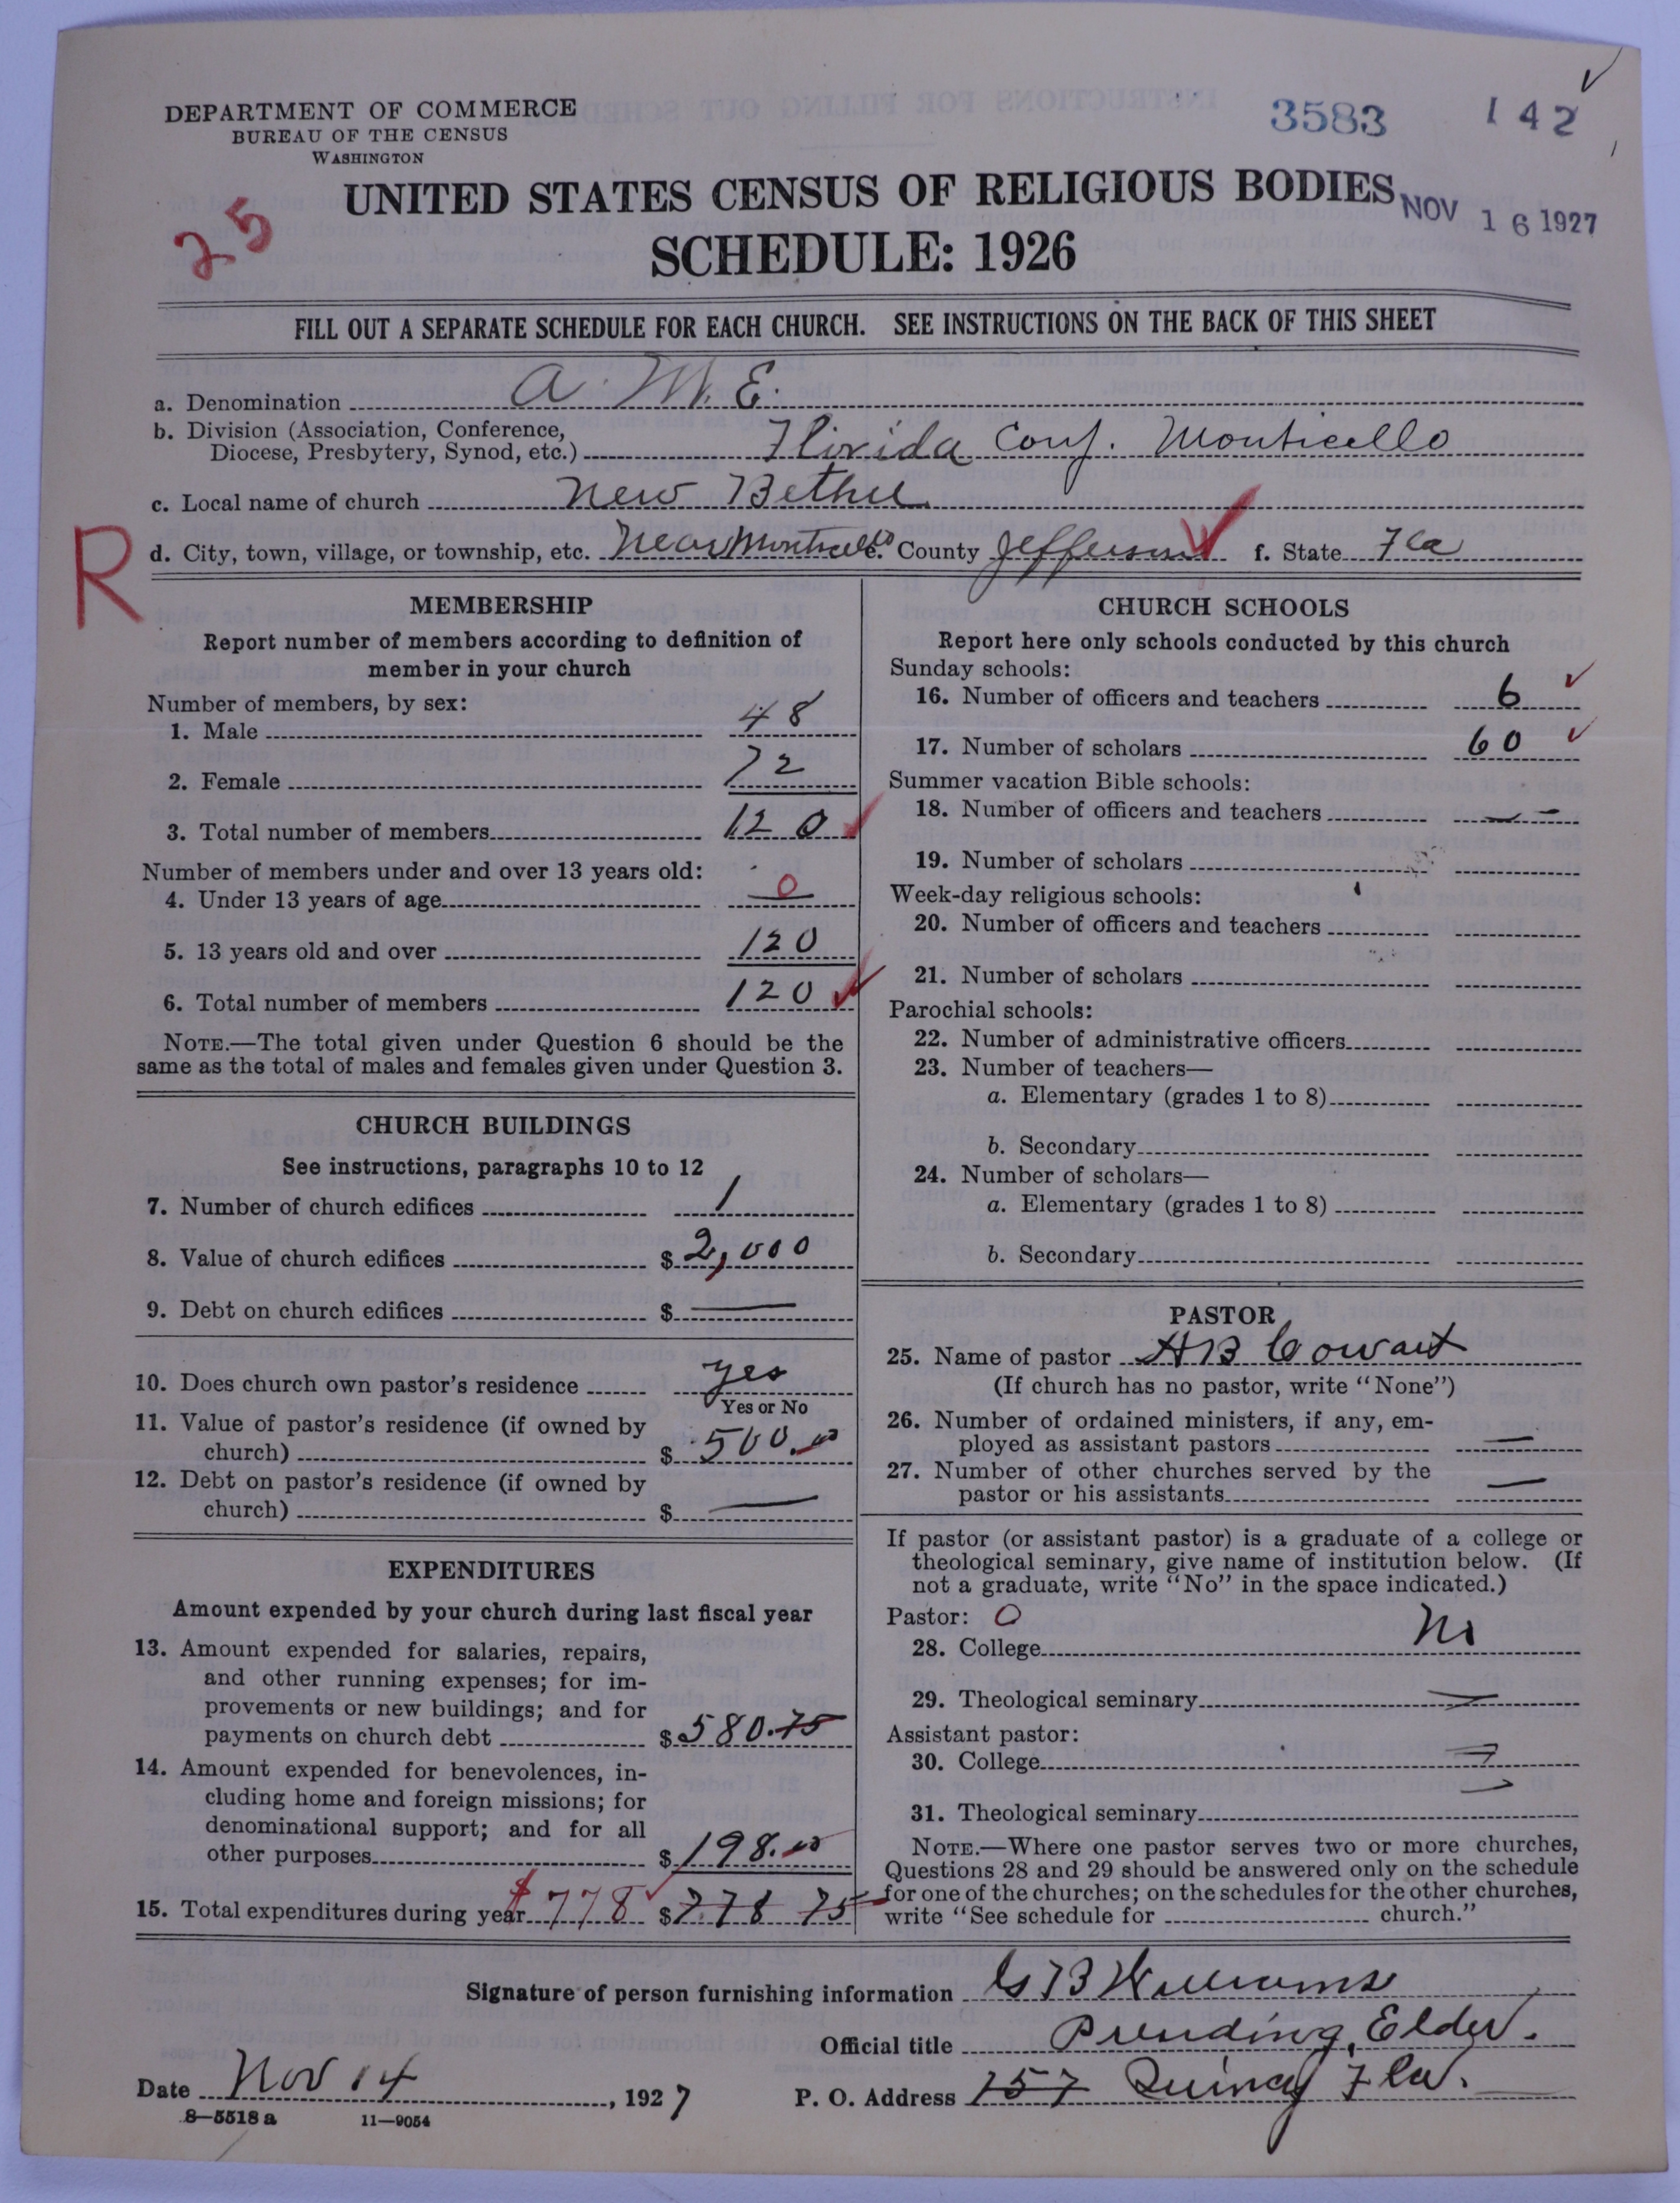 3583 142
DEPARTMENT OF COMMERCE
BUREAU OF THE CENSUS
WASHINGTON
UNITED STATES CENSUS OF RELIGIOUS BODIES
NOV 16 1927
25
SCHEDULE: 1926
FILL OUT A SEPARATE SCHEDULE FOR EACH CHURCH. SEE INSTRUCTIONS ON THE BACK OF THIS SHEET
a. Denomination A. M. E.
b. Division (Association, Conference,
Diocese, Presbytery, Synod, etc.) Florida Conf. Monticello
c. Local name of church New Bethel
R
d. City, town, village, or township, etc. Near Monticello e. County Jefferson f. State Fla
MEMBERSHIP
Report number of members according to definition of
member in your church
Number of members, by sex:
1. Male 48
2. Female 72
3. Total number of members 120
Number of members under and over 13 years old:
4. Under 13 years of age 0
5. 13 years old and over 120
6. Total number of members 120
NOTE.—The total given under Question 6 should be the
same as the total of males and females given under Question 3.
CHURCH BUILDINGS
See instructions, paragraphs 10 to 12
7. Number of church edifices 1
8. Value of church edifices $ 2,000
9. Debt on church edifices $ —
10. Does church own pastor's residence yes
Yes or No
11. Value of pastor's residence (if owned by
church) $ 500.00
12. Debt on pastor's residence (if owned by
church) $ —
EXPENDITURES
Amount expended by your church during last fiscal year
13. Amount expended for salaries, repairs,
and other running expenses; for im-
provements or new buildings; and for
payments on church debt $ 580.75
14. Amount expended for benevolences, in-
cluding home and foreign missions; for
denominational support; and for all
other purposes $ 198.00
15. Total expenditures during year $ 778 $ 778 75
CHURCH SCHOOLS
Report here only schools conducted by this church
Sunday schools:
16. Number of officers and teachers 6
17. Number of scholars 60
Summer vacation Bible schools:
18. Number of officers and teachers — -
19. Number of scholars
Week-day religious schools:
20. Number of officers and teachers
21. Number of scholars
Parochial schools:
22. Number of administrative officers
23. Number of teachers—
a. Elementary (grades 1 to 8)
b. Secondary
24. Number of scholars—
a. Elementary (grades 1 to 8)
b. Secondary
PASTOR
25. Name of pastor H B Cowart
(If church has no pastor, write "None")
26. Number of ordained ministers, if any, em-
ployed as assistant pastors —
27. Number of other churches served by the
pastor or his assistants —
If pastor (or assistant pastor) is a graduate of a college or
theological seminary, give name of institution below. (If
not a graduate, write "No" in the space indicated.)
Pastor: O
28. College No
29. Theological seminary —
Assistant pastor:
30. College —
31. Theological seminary —
NOTE.—Where one pastor serves two or more churches,
Questions 28 and 29 should be answered only on the schedule
for one of the churches; on the schedules for the other churches,
write "See schedule for church."
Signature of person furnishing information B Williams
Official title Presiding Elder.
Date Nov 14, 1927 P. O. Address 157 Quincy Fla.
8—5518 a 11—9054